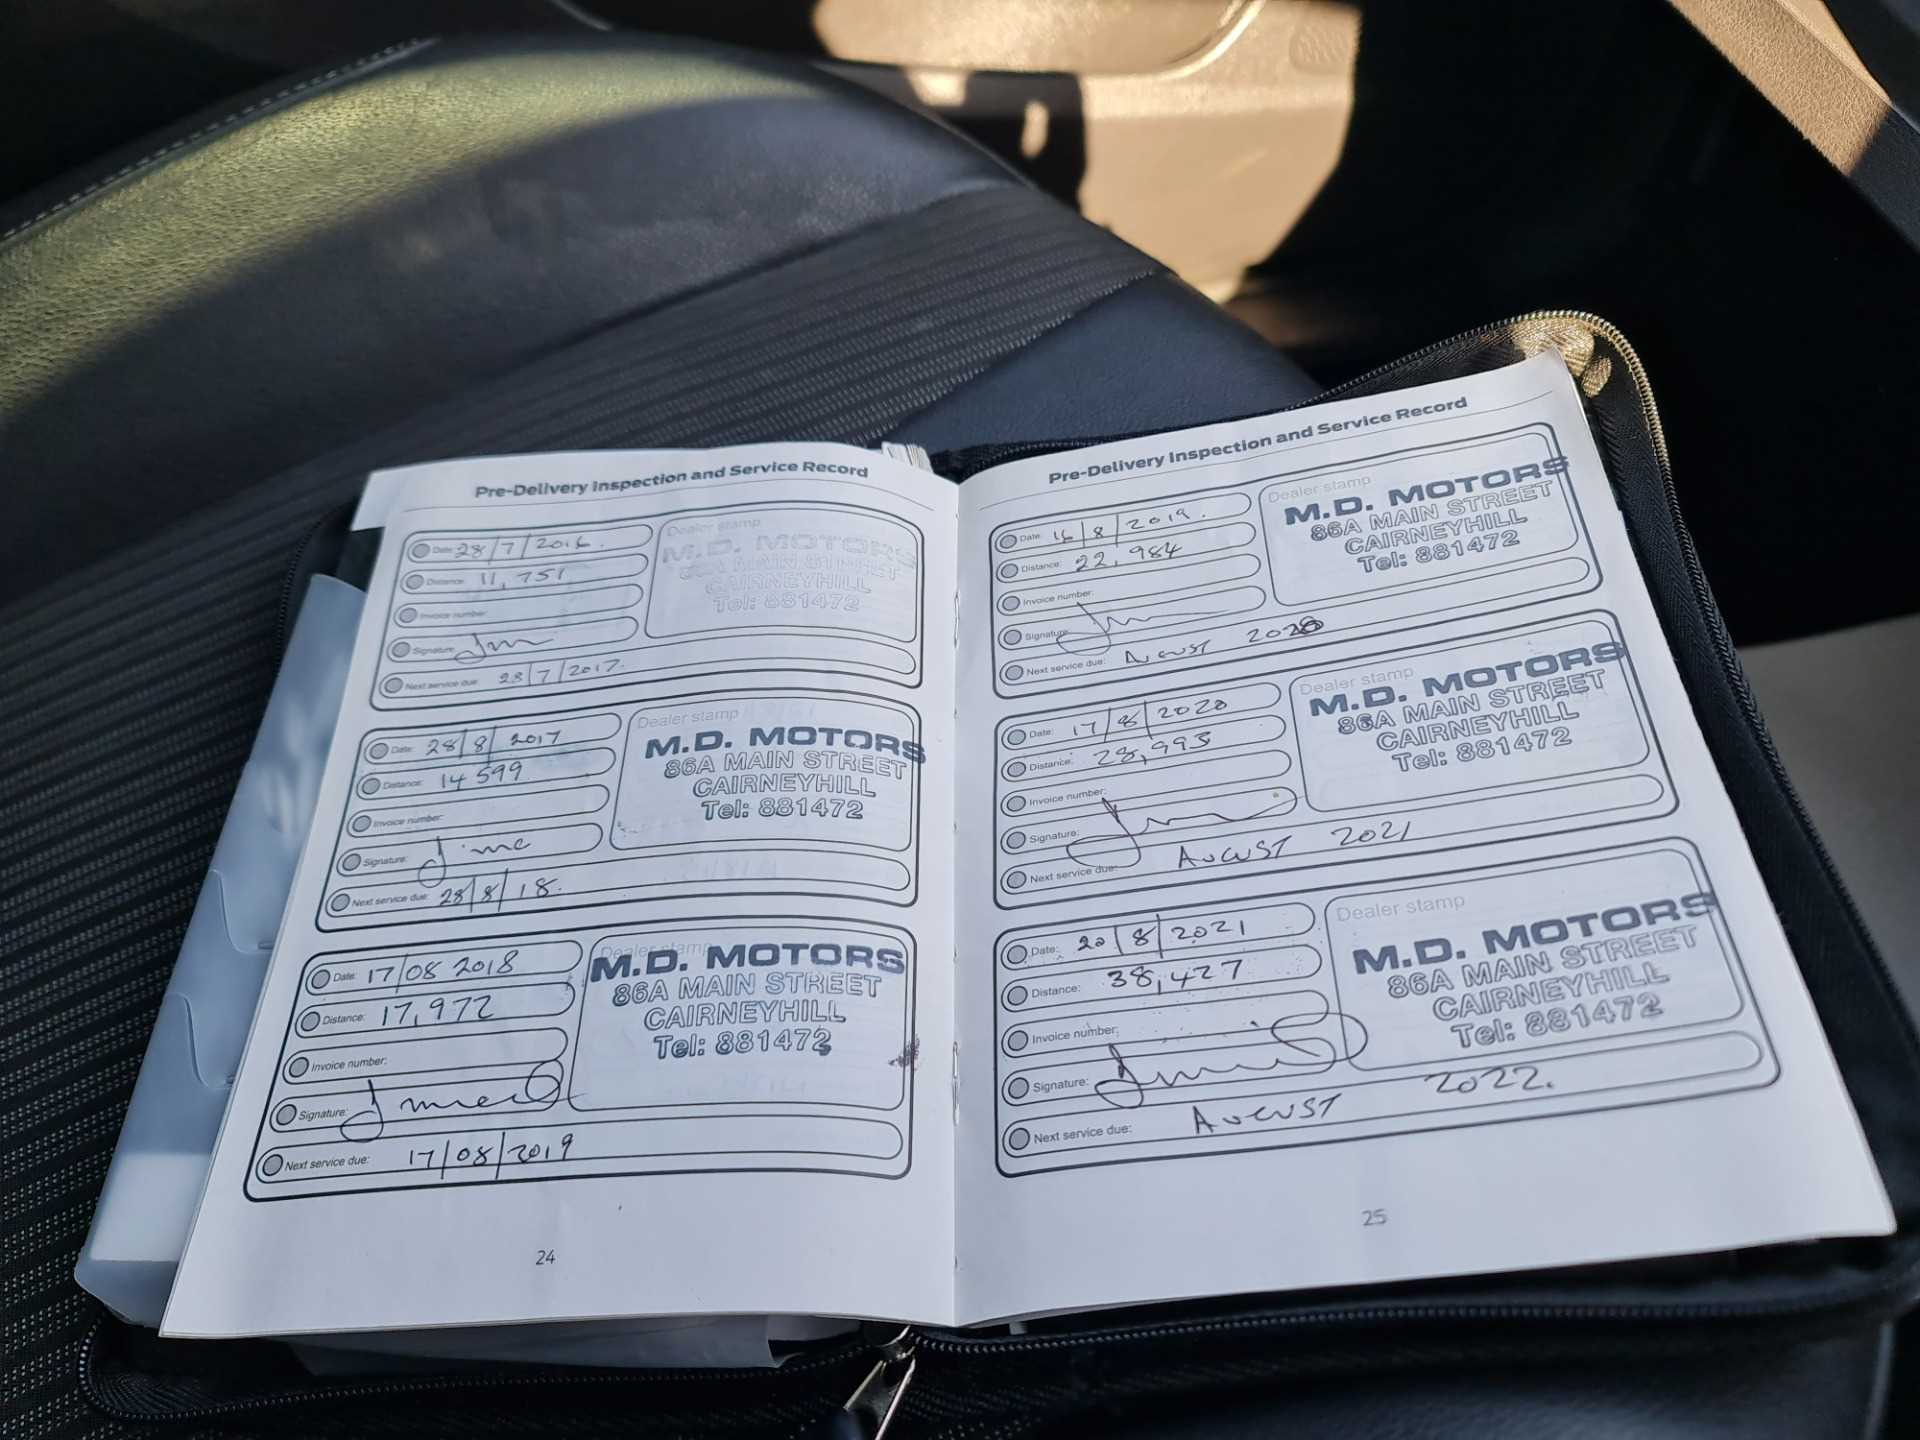 Pre-Delivery Inspection and Service Record
Date: 28/7/2016.
Distance: 11,751
Invoice number:
Signature:
Next service due: 28/7/2017.
Dealer stamp
M.D. MOTORS
86A MAIN STREET
CAIRNEYHILL
Tel: 881472
Date: 28/8/2017
Distance: 14599
Invoice number:
Signature:
Next service due: 28/8/18.
Dealer stamp
M.D. MOTORS
86A MAIN STREET
CAIRNEYHILL
Tel: 881472
Date: 17/08 2018
Distance: 17,972
Invoice number:
Signature:
Next service due: 17/08/2019
Dealer stamp
M.D. MOTORS
86A MAIN STREET
CAIRNEYHILL
Tel: 881472
24
Pre-Delivery Inspection and Service Record
Date: 16/8/2019.
Distance: 22,984
Invoice number:
Signature:
Next service due: AUGUST 2020
Dealer stamp
M.D. MOTORS
86A MAIN STREET
CAIRNEYHILL
Tel: 881472
Date: 17/8/2020
Distance: 28,993
Invoice number:
Signature:
Next service due: AUGUST 2021
Dealer stamp
M.D. MOTORS
86A MAIN STREET
CAIRNEYHILL
Tel: 881472
Date: 20/8/2021
Distance: 38,427
Invoice number:
Signature:
Next service due: AUGUST 2022.
Dealer stamp
M.D. MOTORS
86A MAIN STREET
CAIRNEYHILL
Tel: 881472
25